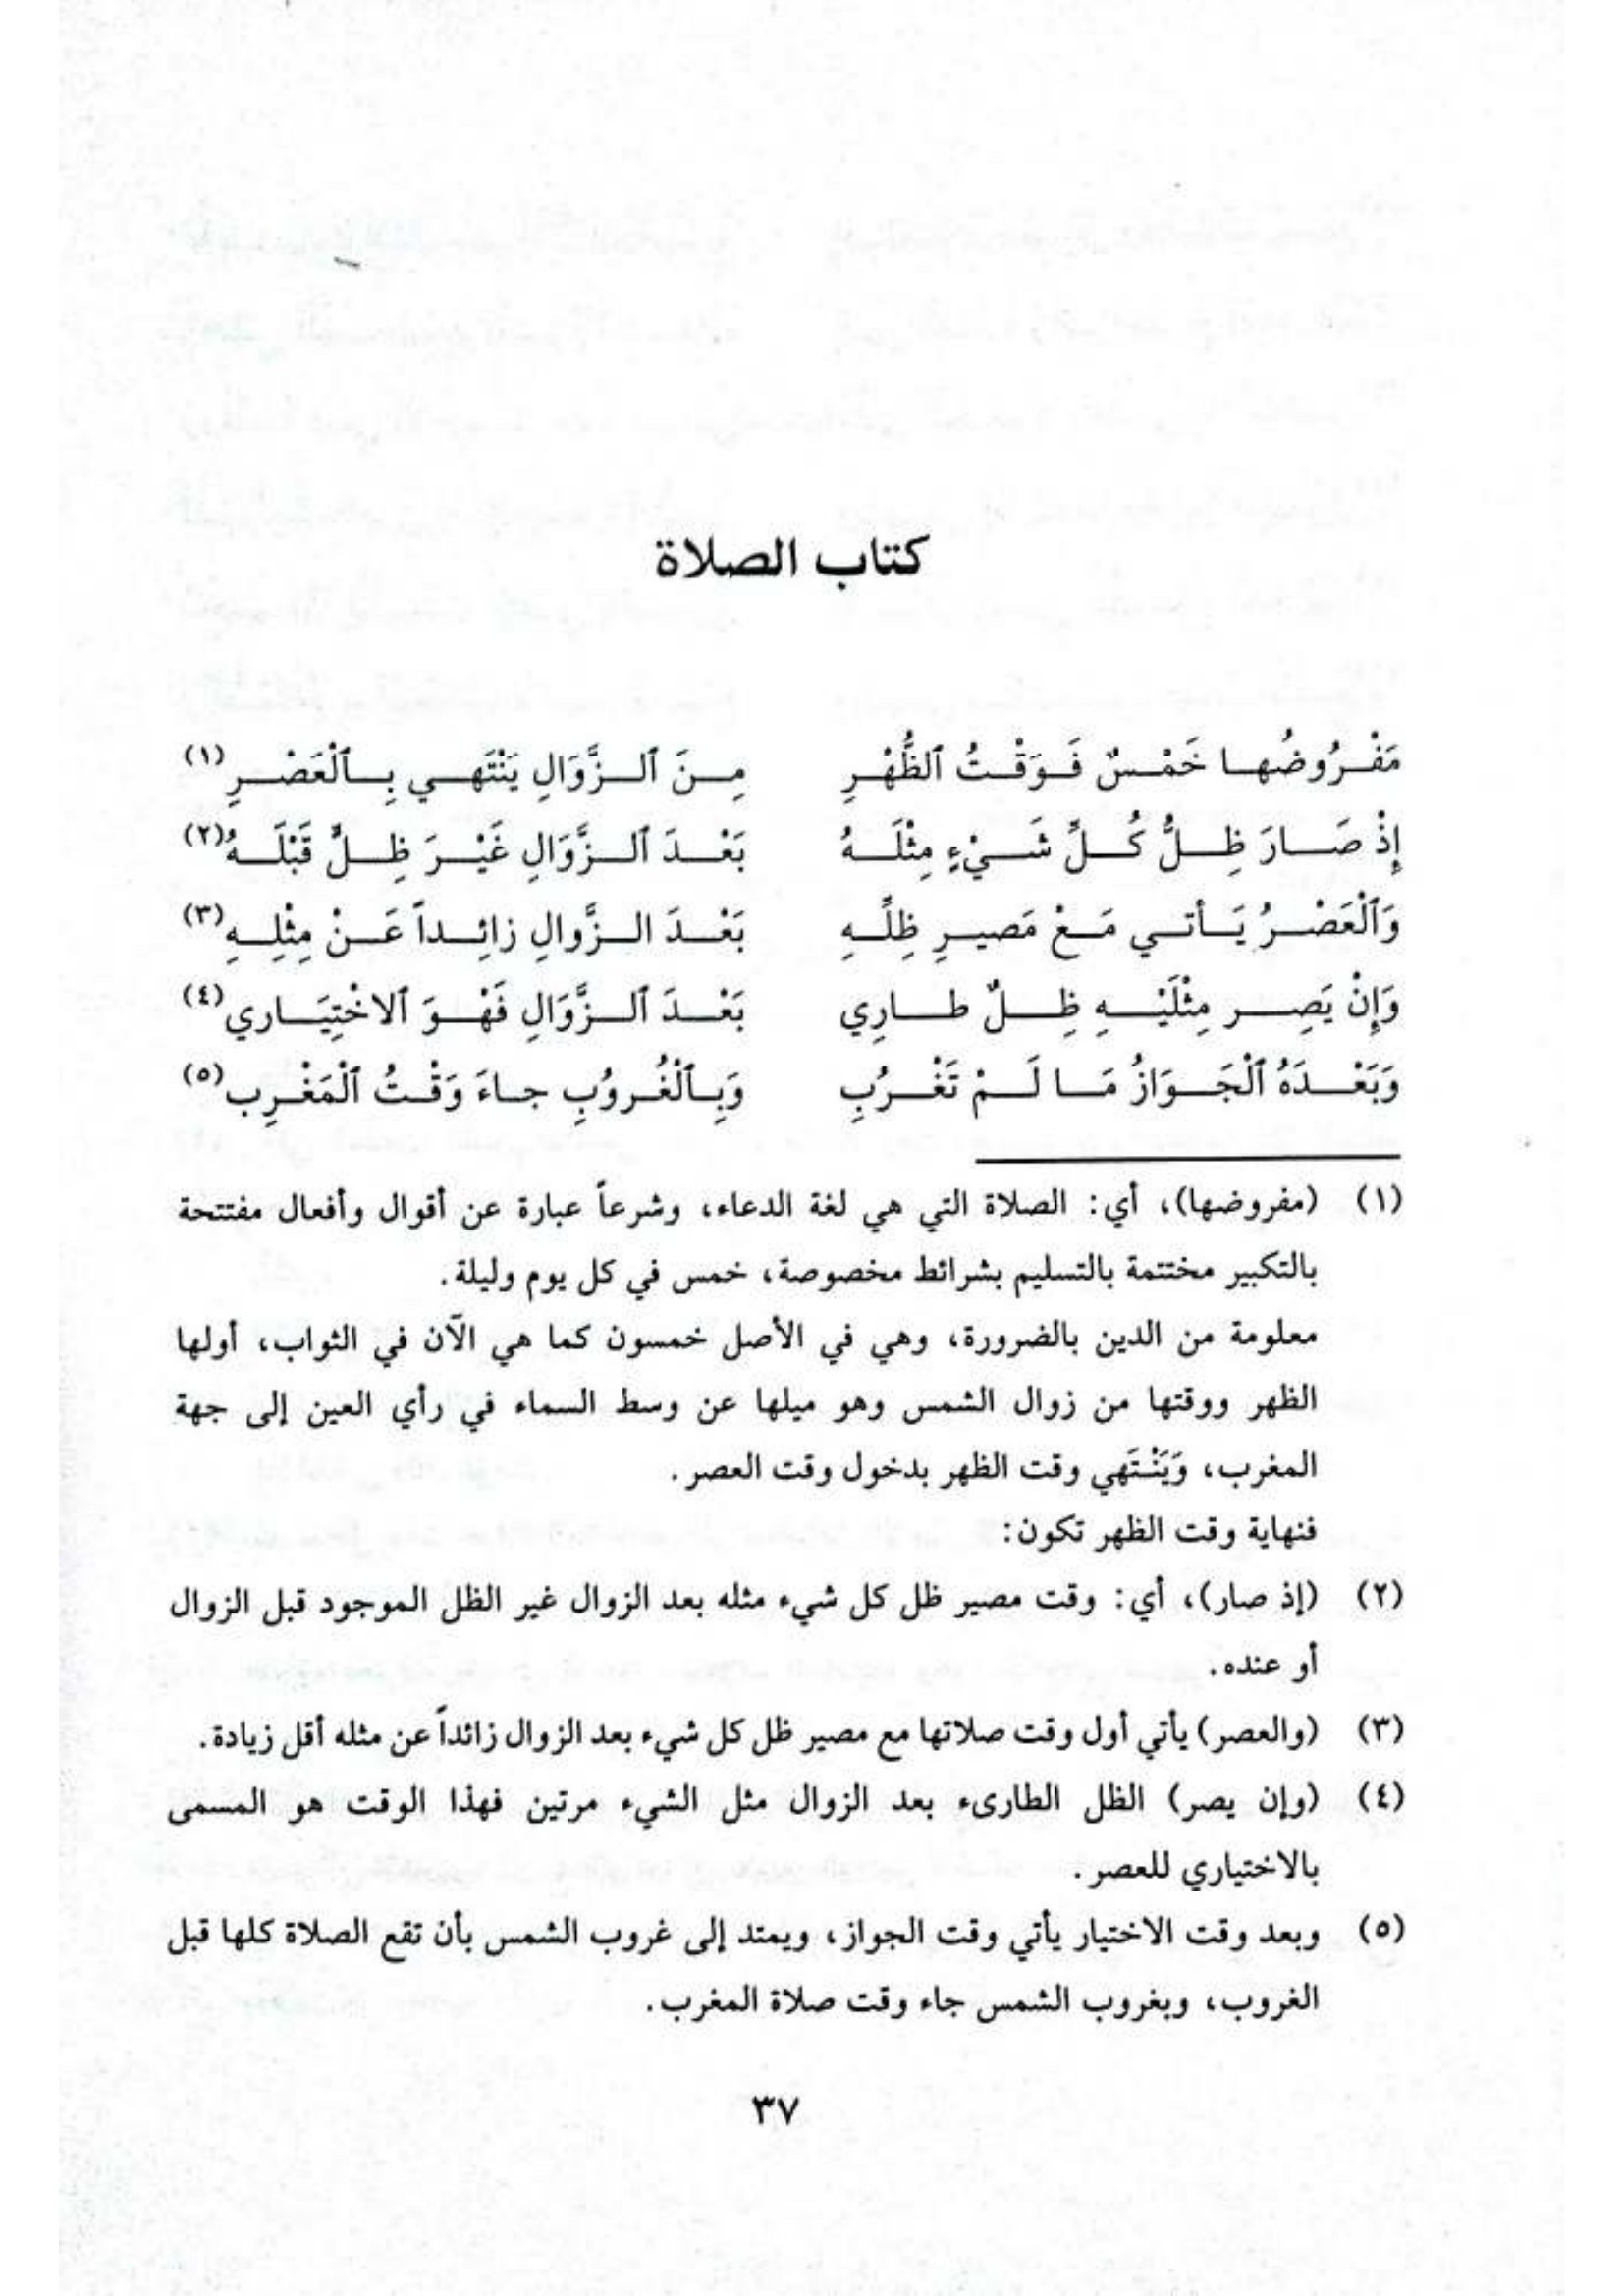 كتاب الصلاة
مَفْرُوضُها خَمْسٌ فَوَقْتُ ٱلظُّهْرِ مِنَ ٱلزَّوَالِ يَنْتَهي بِٱلْعَصْرِ(١)
إِذْ صَارَ ظِلُّ كُلِّ شَيْءٍ مِثْلَهُ بَعْدَ ٱلزَّوَالِ غَيْرَ ظِلٍّ قَبْلَهُ(٢)
وَٱلْعَصْرُ يَأتي مَعْ مَصيرِ ظِلِّهِ بَعْدَ الزَّوالِ زائِداً عَنْ مِثْلِهِ(٣)
وَإِنْ يَصِر مِثْلَيْهِ ظِلٌّ طارِي بَعْدَ ٱلزَّوَالِ فَهْوَ ٱلاخْتِيَاري(٤)
وَبَعْدَهُ ٱلْجَوَازُ مَا لَمْ تَغْرُبِ وَبِٱلْغُروُبِ جاءَ وَقْتُ ٱلْمَغْرِب(٥)
(١) (مفروضها)، أي: الصلاة التي هي لغة الدعاء، وشرعاً عبارة عن أقوال وأفعال مفتتحة
بالتكبير مختتمة بالتسليم بشرائط مخصوصة، خمس في كل يوم وليلة.
معلومة من الدين بالضرورة، وهي في الأصل خمسون كما هي الآن في الثواب، أولها
الظهر ووقتها من زوال الشمس وهو ميلها عن وسط السماء في رأي العين إلى جهة
المغرب، وَيَنْتَهي وقت الظهر بدخول وقت العصر.
فنهاية وقت الظهر تكون:
(٢) (إذ صار)، أي: وقت مصير ظل كل شيء مثله بعد الزوال غير الظل الموجود قبل الزوال
أو عنده.
(٣) (والعصر) يأتي أول وقت صلاتها مع مصير ظل كل شيء بعد الزوال زائداً عن مثله أقل زيادة.
(٤) (وإن يصر) الظل الطارىء بعد الزوال مثل الشيء مرتين فهذا الوقت هو المسمى
بالاختياري للعصر.
(٥) وبعد وقت الاختيار يأتي وقت الجواز، ويمتد إلى غروب الشمس بأن تقع الصلاة كلها قبل
الغروب، وبغروب الشمس جاء وقت صلاة المغرب.
٣٧